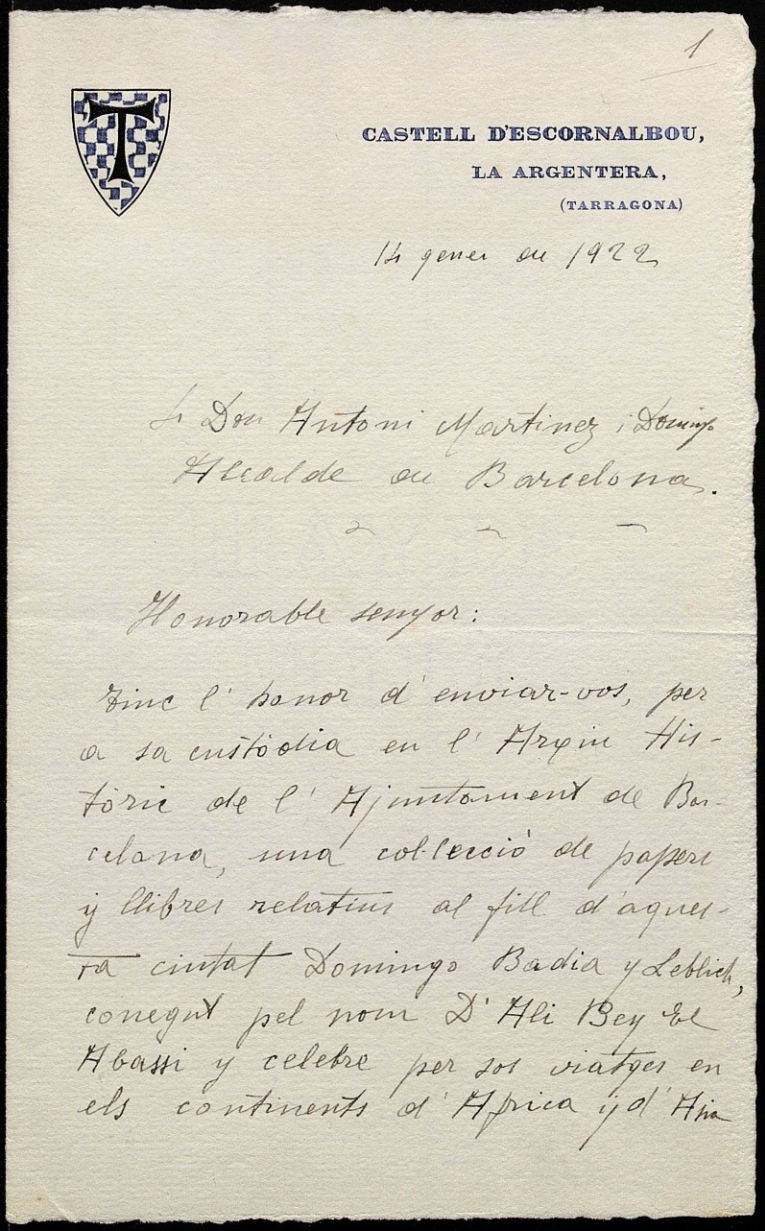 1
T
CASTELL D'ESCORNALBOU,
LA ARGENTERA,
(TARRAGONA)
14 gener de 1922
Sr Don Antoni Martinez i Domingo
Alcalde de Barcelona.
Honorable senyor:
Tinc l' honor d' enviar-vos, per
a sa custòdia en l' Arxiu His-
tòric de l' Ajuntament de Bar-
celona, una col·lecció de papers
y llibres relatius al fill d'aques-
ta ciutat Domingo Badia y Leblich,
conegut pel nom D' Ali Bey El
Abassi y celebre per sos viatges en
els continents d' Africa y d' Asia